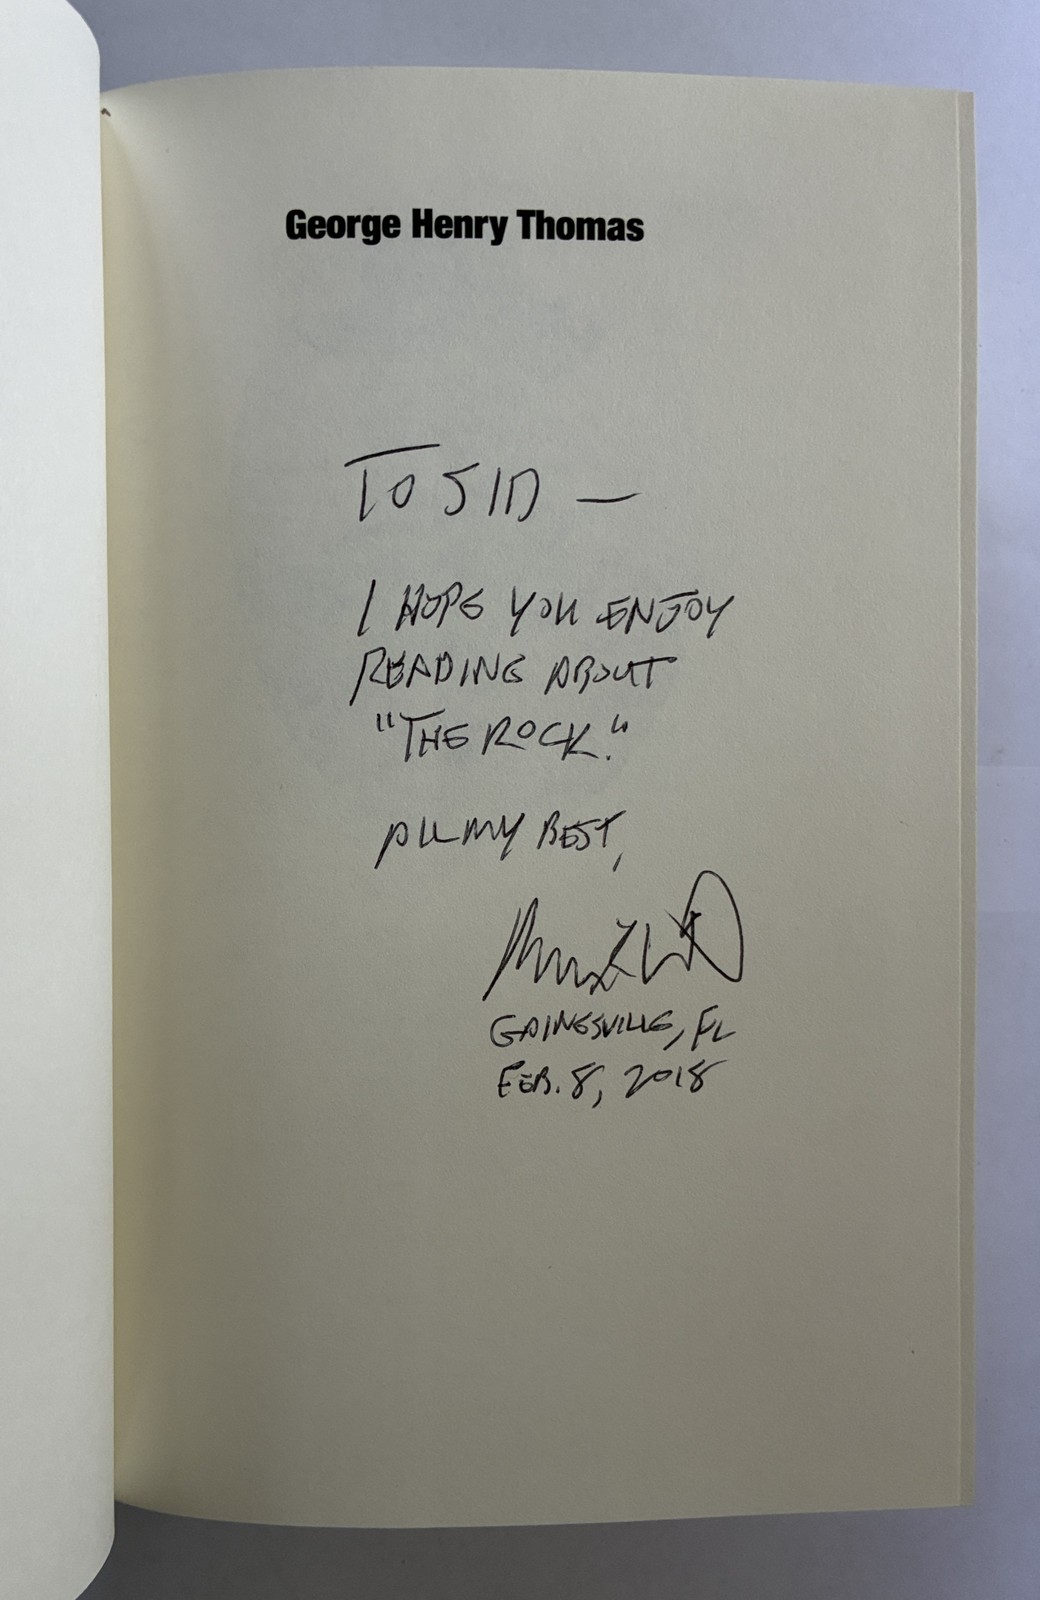 George Henry Thomas
TO SID —
I HOPE YOU ENJOY
READING ABOUT
"THE ROCK."
ALL MY BEST,
GAINESVILLE, FL
FEB. 8, 2018